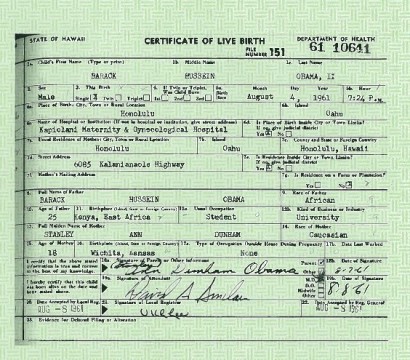 STATE OF HAWAII CERTIFICATE OF LIVE BIRTH DEPARTMENT OF HEALTH
FILE NUMBER 151 61 10641
1a. Child's First Name (Type or print) 1b. Middle Name 1c. Last Name
BARACK HUSSEIN OBAMA, II
2. Sex 3. This Birth 4. If Twin or Triplet, Was Child Born 5a. Birth Date Month Day Year 5b. Hour
Male Single Twin Triplet 1st 2nd 3rd August 4, 1961 7:24 P.M.
6a. Place of Birth: City, Town or Rural Location 6b. Island
Honolulu Oahu
6c. Name of Hospital or Institution (If not in hospital or institution, give street address) 6d. Is Place of Birth Inside City or Town Limits? If no, give judicial district
Kapiolani Maternity & Gynecological Hospital Yes No
7a. Usual Residence of Mother: City, Town or Rural Location 7b. Island 7c. County and State or Foreign Country
Honolulu Oahu Honolulu, Hawaii
7d. Street Address 7e. Is Residence Inside City or Town Limits? If no, give judicial district
6085 Kalanianaole Highway Yes No
7f. Mother's Mailing Address 7g. Is Residence on a Farm or Plantation?
Yes No
8. Full Name of Father 9. Race of Father
BARACK HUSSEIN OBAMA African
10. Age of Father 11. Birthplace (Island, State or Foreign Country) 12a. Usual Occupation 12b. Kind of Business or Industry
25 Kenya, East Africa Student University
13. Full Maiden Name of Mother 14. Race of Mother
STANLEY ANN DUNHAM Caucasian
15. Age of Mother 16. Birthplace (Island, State or Foreign Country) 17a. Type of Occupation Outside Home During Pregnancy 17b. Date Last Worked
18 Wichita, Kansas None
I certify that the above stated information is true and correct to the best of my knowledge. 18a. Signature of Parent or Other Informant Parent Other 18b. Date of Signature
Dunham Obama 8-7-61
I hereby certify that this child was born alive on the date and hour stated above. 19a. Signature of Attendant M.D. D.O. Midwife Other 19b. Date of Signature
David A Sinclair 8-8-61
20. Date Accepted by Local Reg. 21. Signature of Local Registrar 22. Date Accepted by Reg. General
AUG -8 1961 AUG -8 1961
23. Evidence for Delayed Filing or Alteration